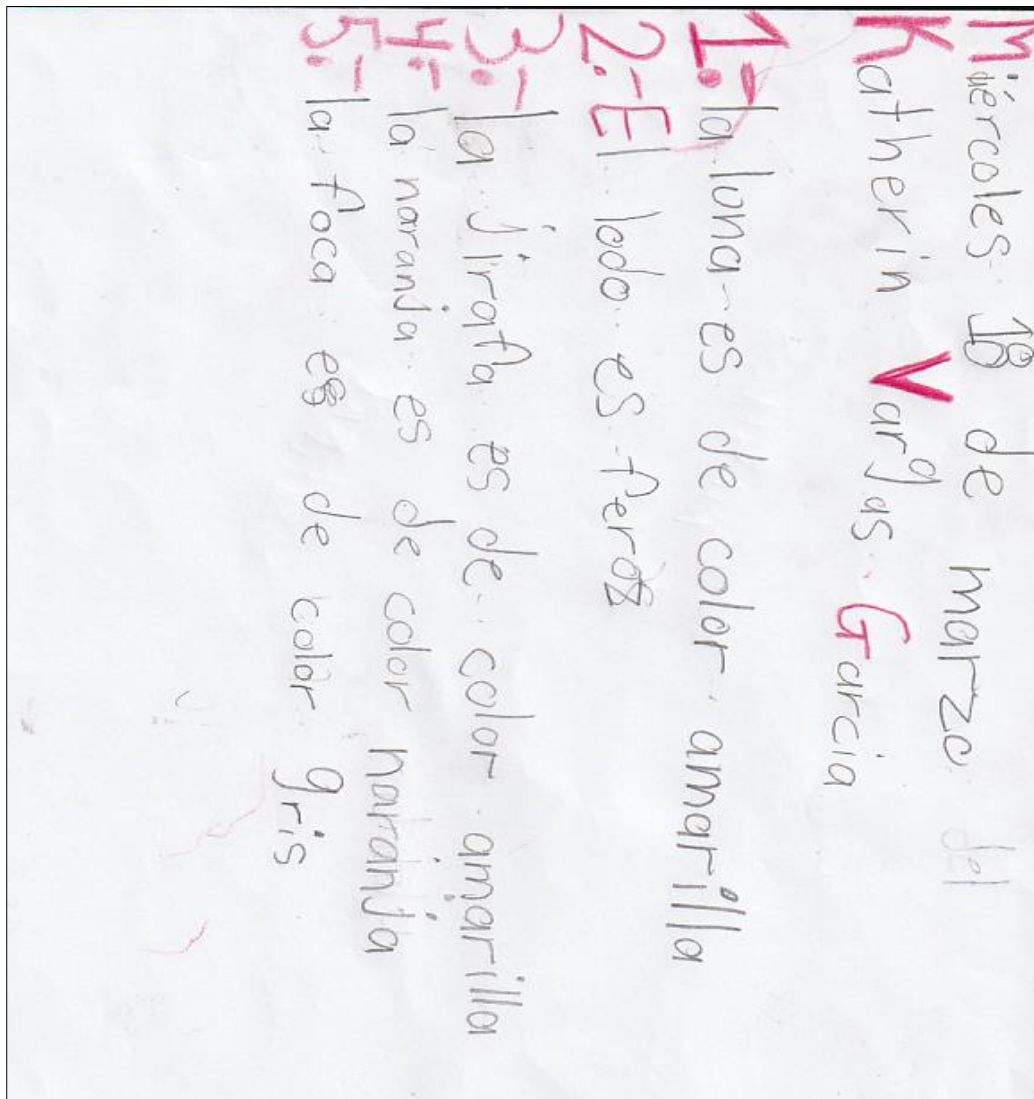 Miércoles 18 de marzo del
Katherin Vargas Garcia
1.- la luna es de color amarilla
2.- El lodo es feroz
3.- la jirafa es de color amarilla
4.- la naranja es de color naranja
5.- la foca es de color gris